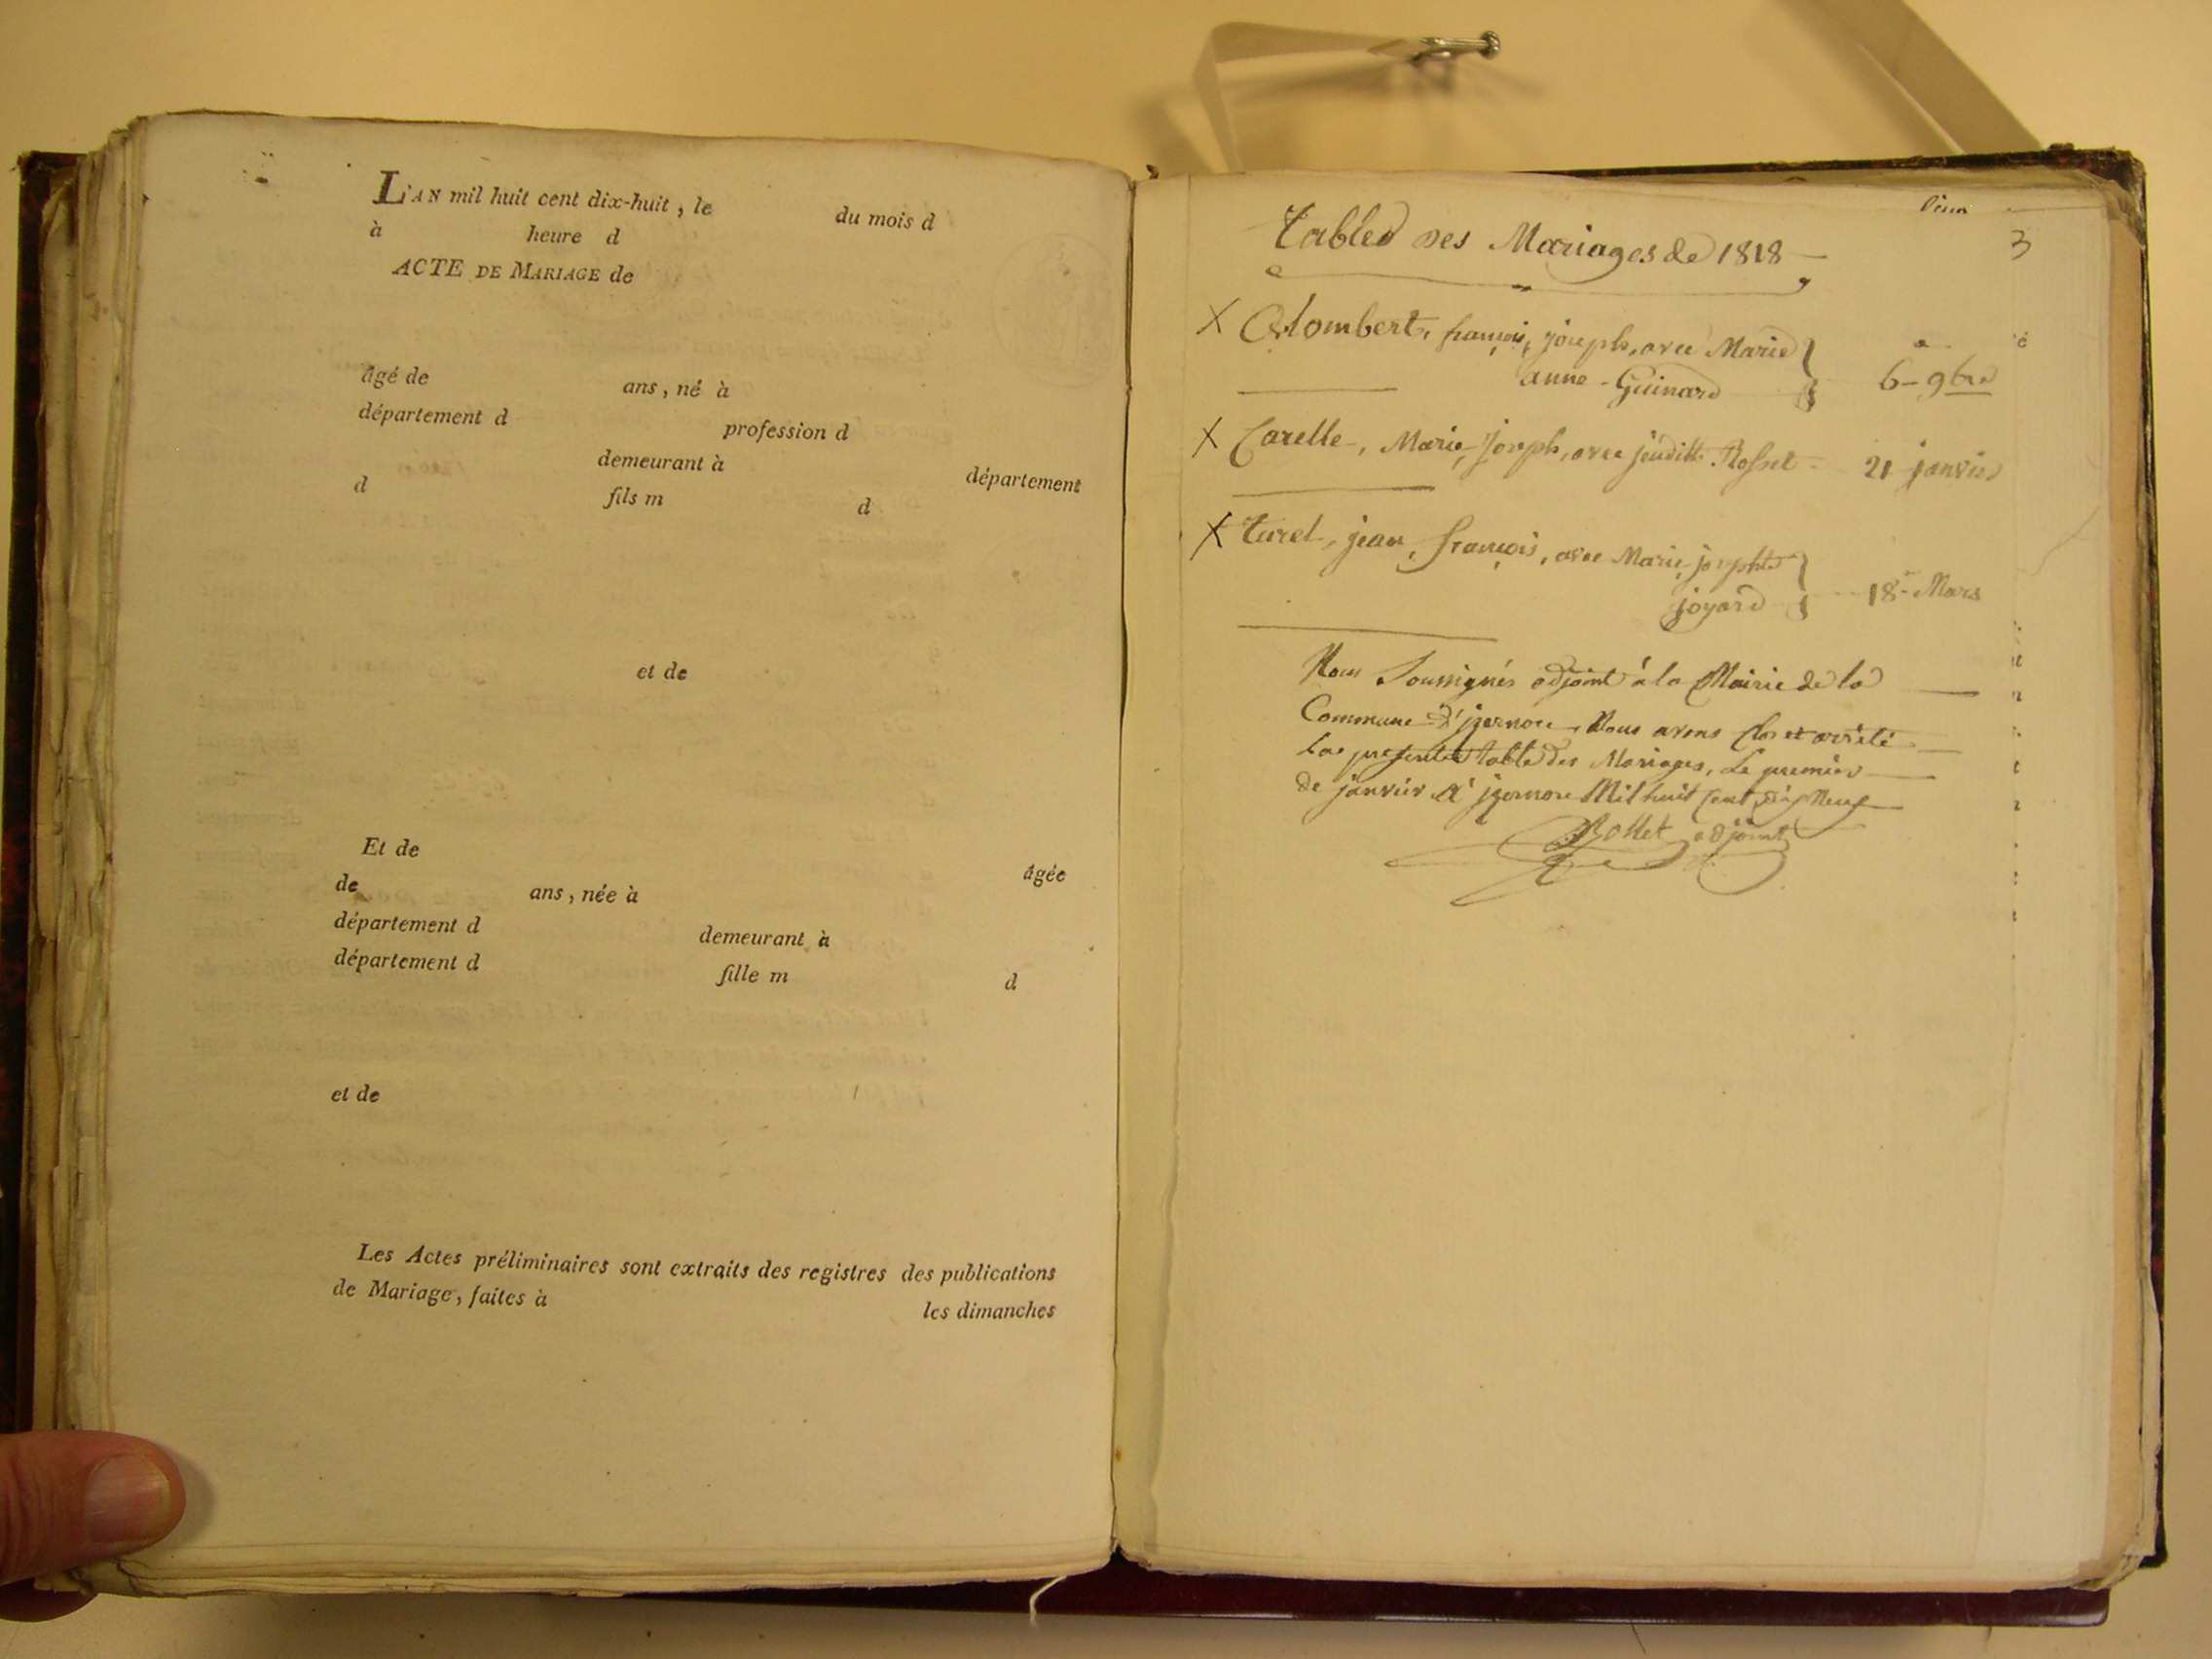 L'AN mil huit cent dix-huit, le du mois d
à heure d
ACTE DE MARIAGE de
âgé de ans, né à
département d profession d
demeurant à département
d fils m d
et de
Et de âgée
de ans, née à
département d demeurant à
département d fille m d
et de
Les Actes préliminaires sont extraits des registres des publications
de Mariage, faites à les dimanches
3
Tables des Mariages de 1818
X françois, joseph, avec Marie
anne - Guinard 6 - 9bre
X Carelle, Marie, joseph, avec juditte Rosset 21 janvier
X turel, jean, françois, avec Marie, josephte
joyard 18 Mars
Nous Soussignés adjoint à la Mairie de la
Commune d'jzernore, Nous avons Clos et arrêté
La presente table des Mariages, Le premier
de janvier A jzernore Mil huit Cent dix Neuf
Bollet adjoint